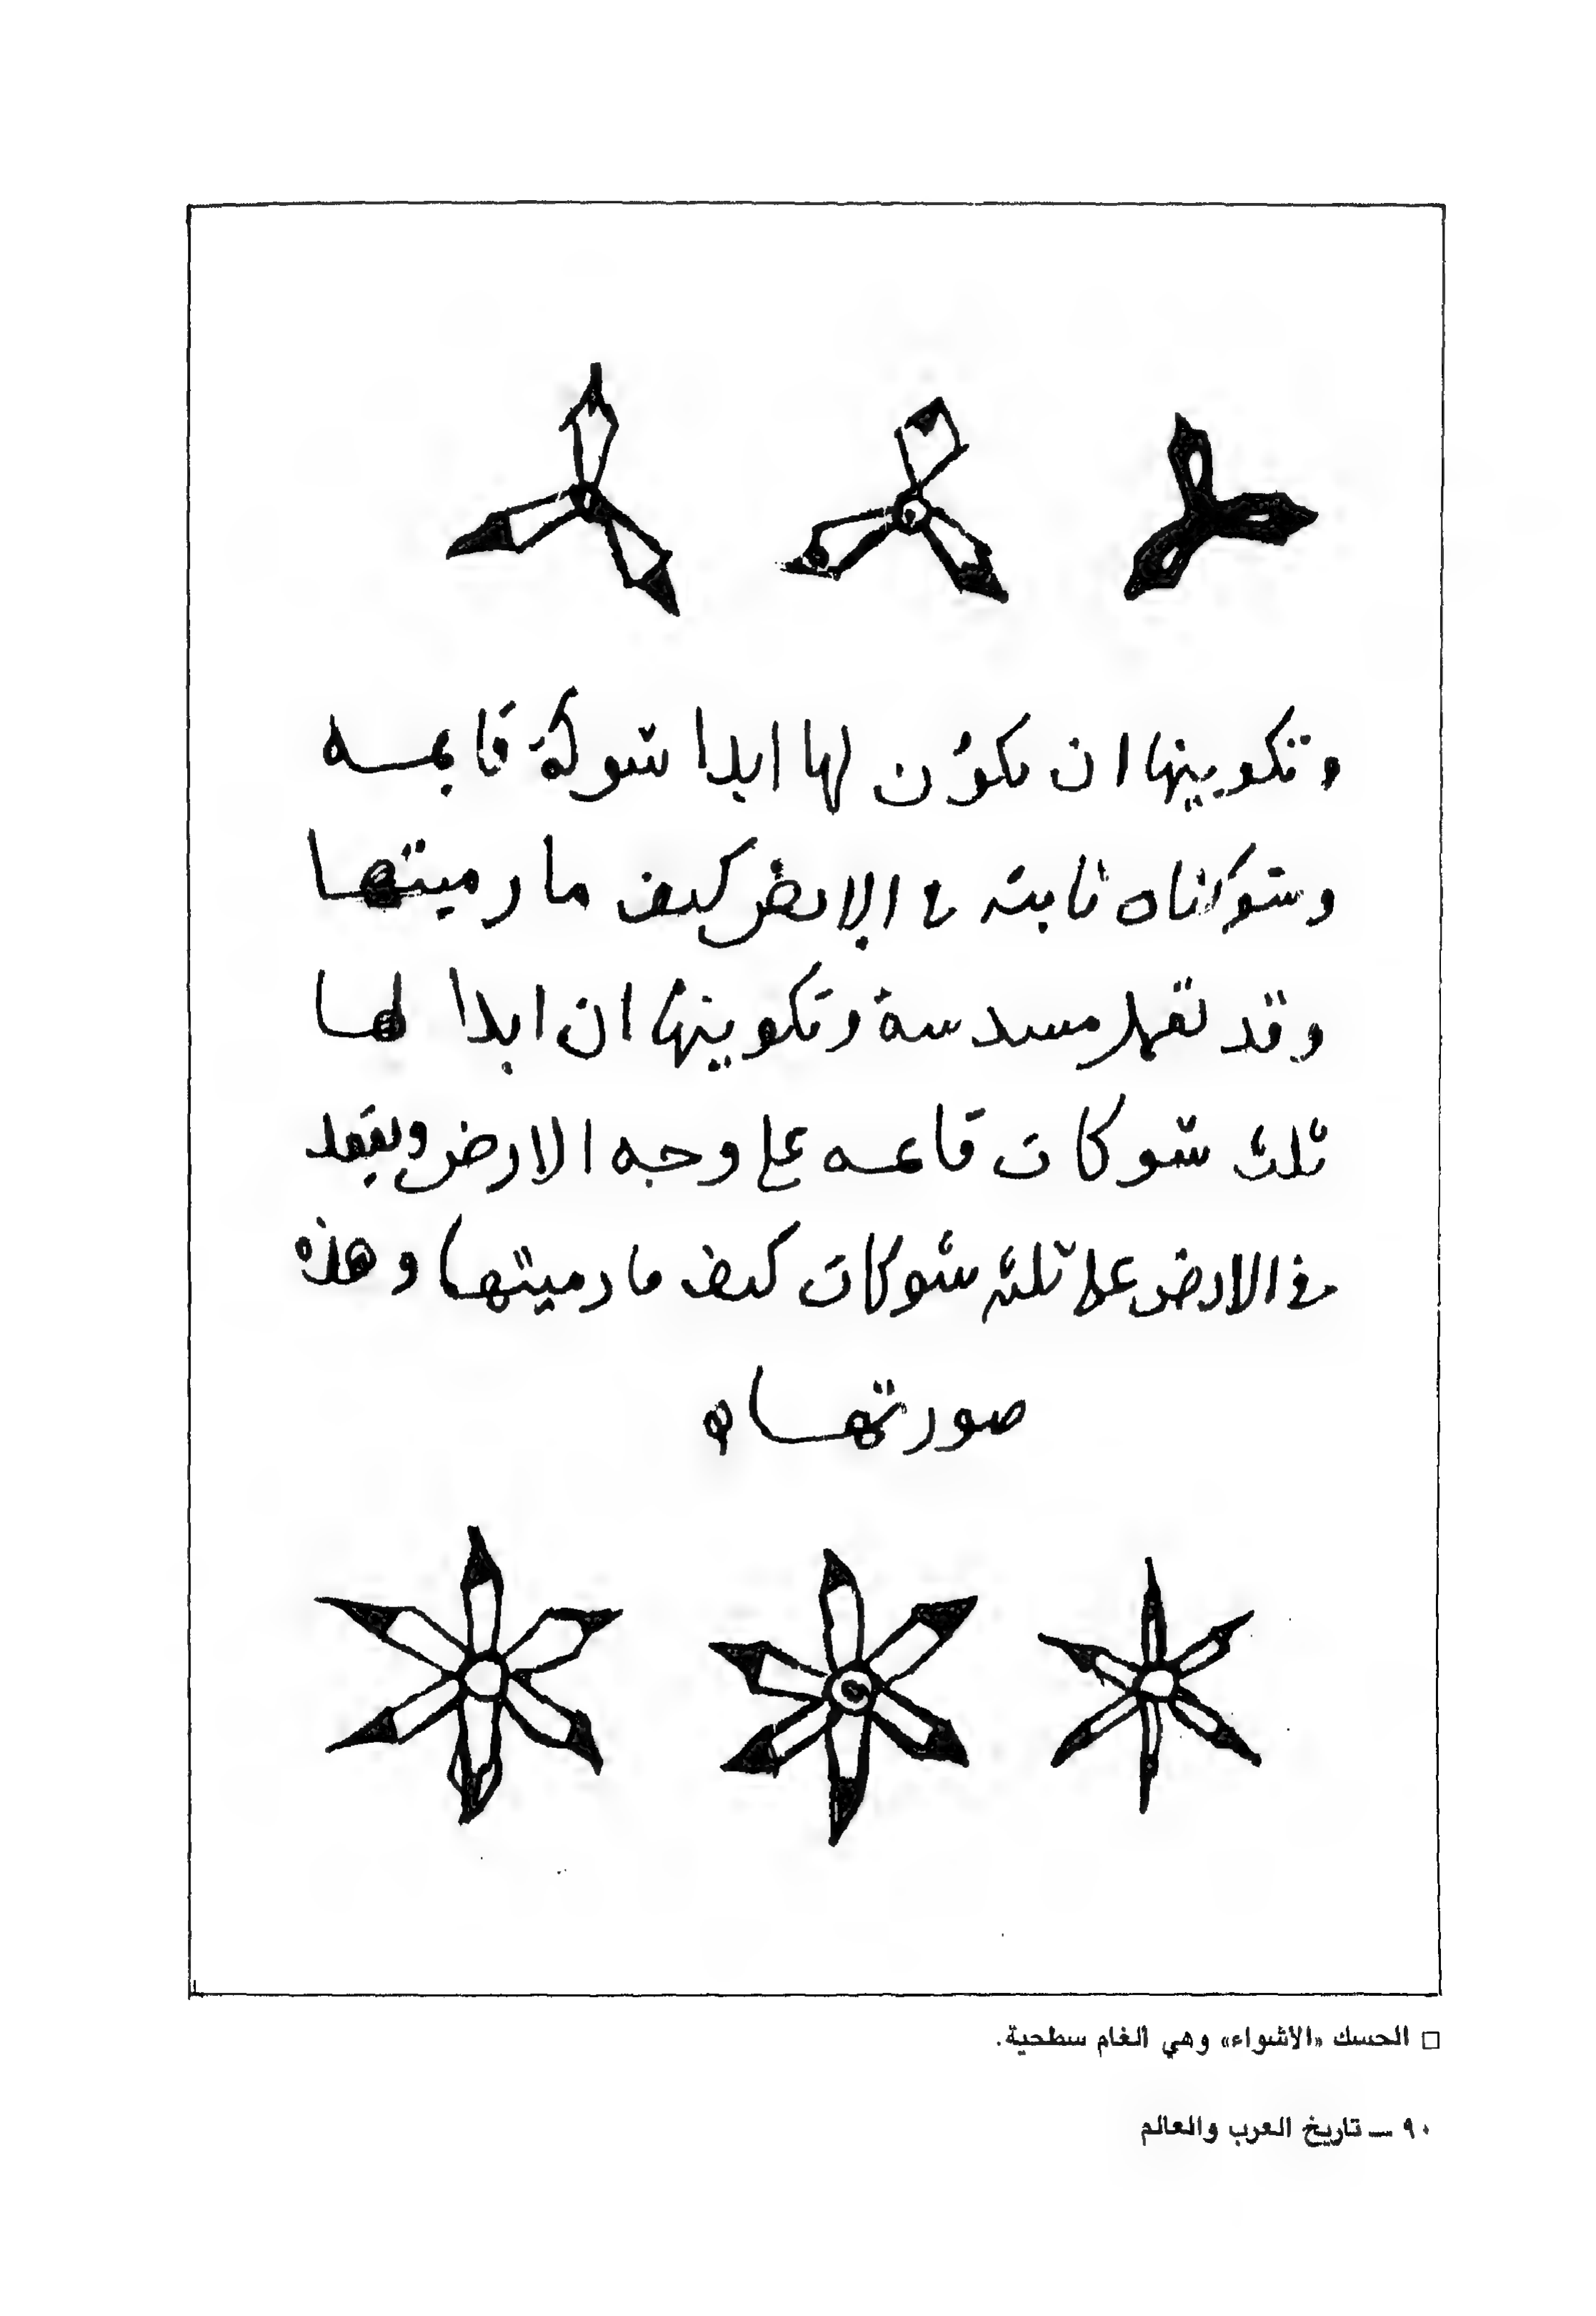 وتكوينها ان يكون لها ابدا شوكة قايمـه
وشوكاناه ثابته في الارض كيف ما رميتها
وقد تعمل مسدسة وتكوينها ان ابدا لها
ثلث شوكات قاعمه على وجه الارض ويقعد
في الارض على ثلثه شوكات كيف ما رميتها وهذه
صورتها
□ الحسك «الأشواء» وهي الغام سطحية.
٩٠ ــ تاريخ العرب والعالم